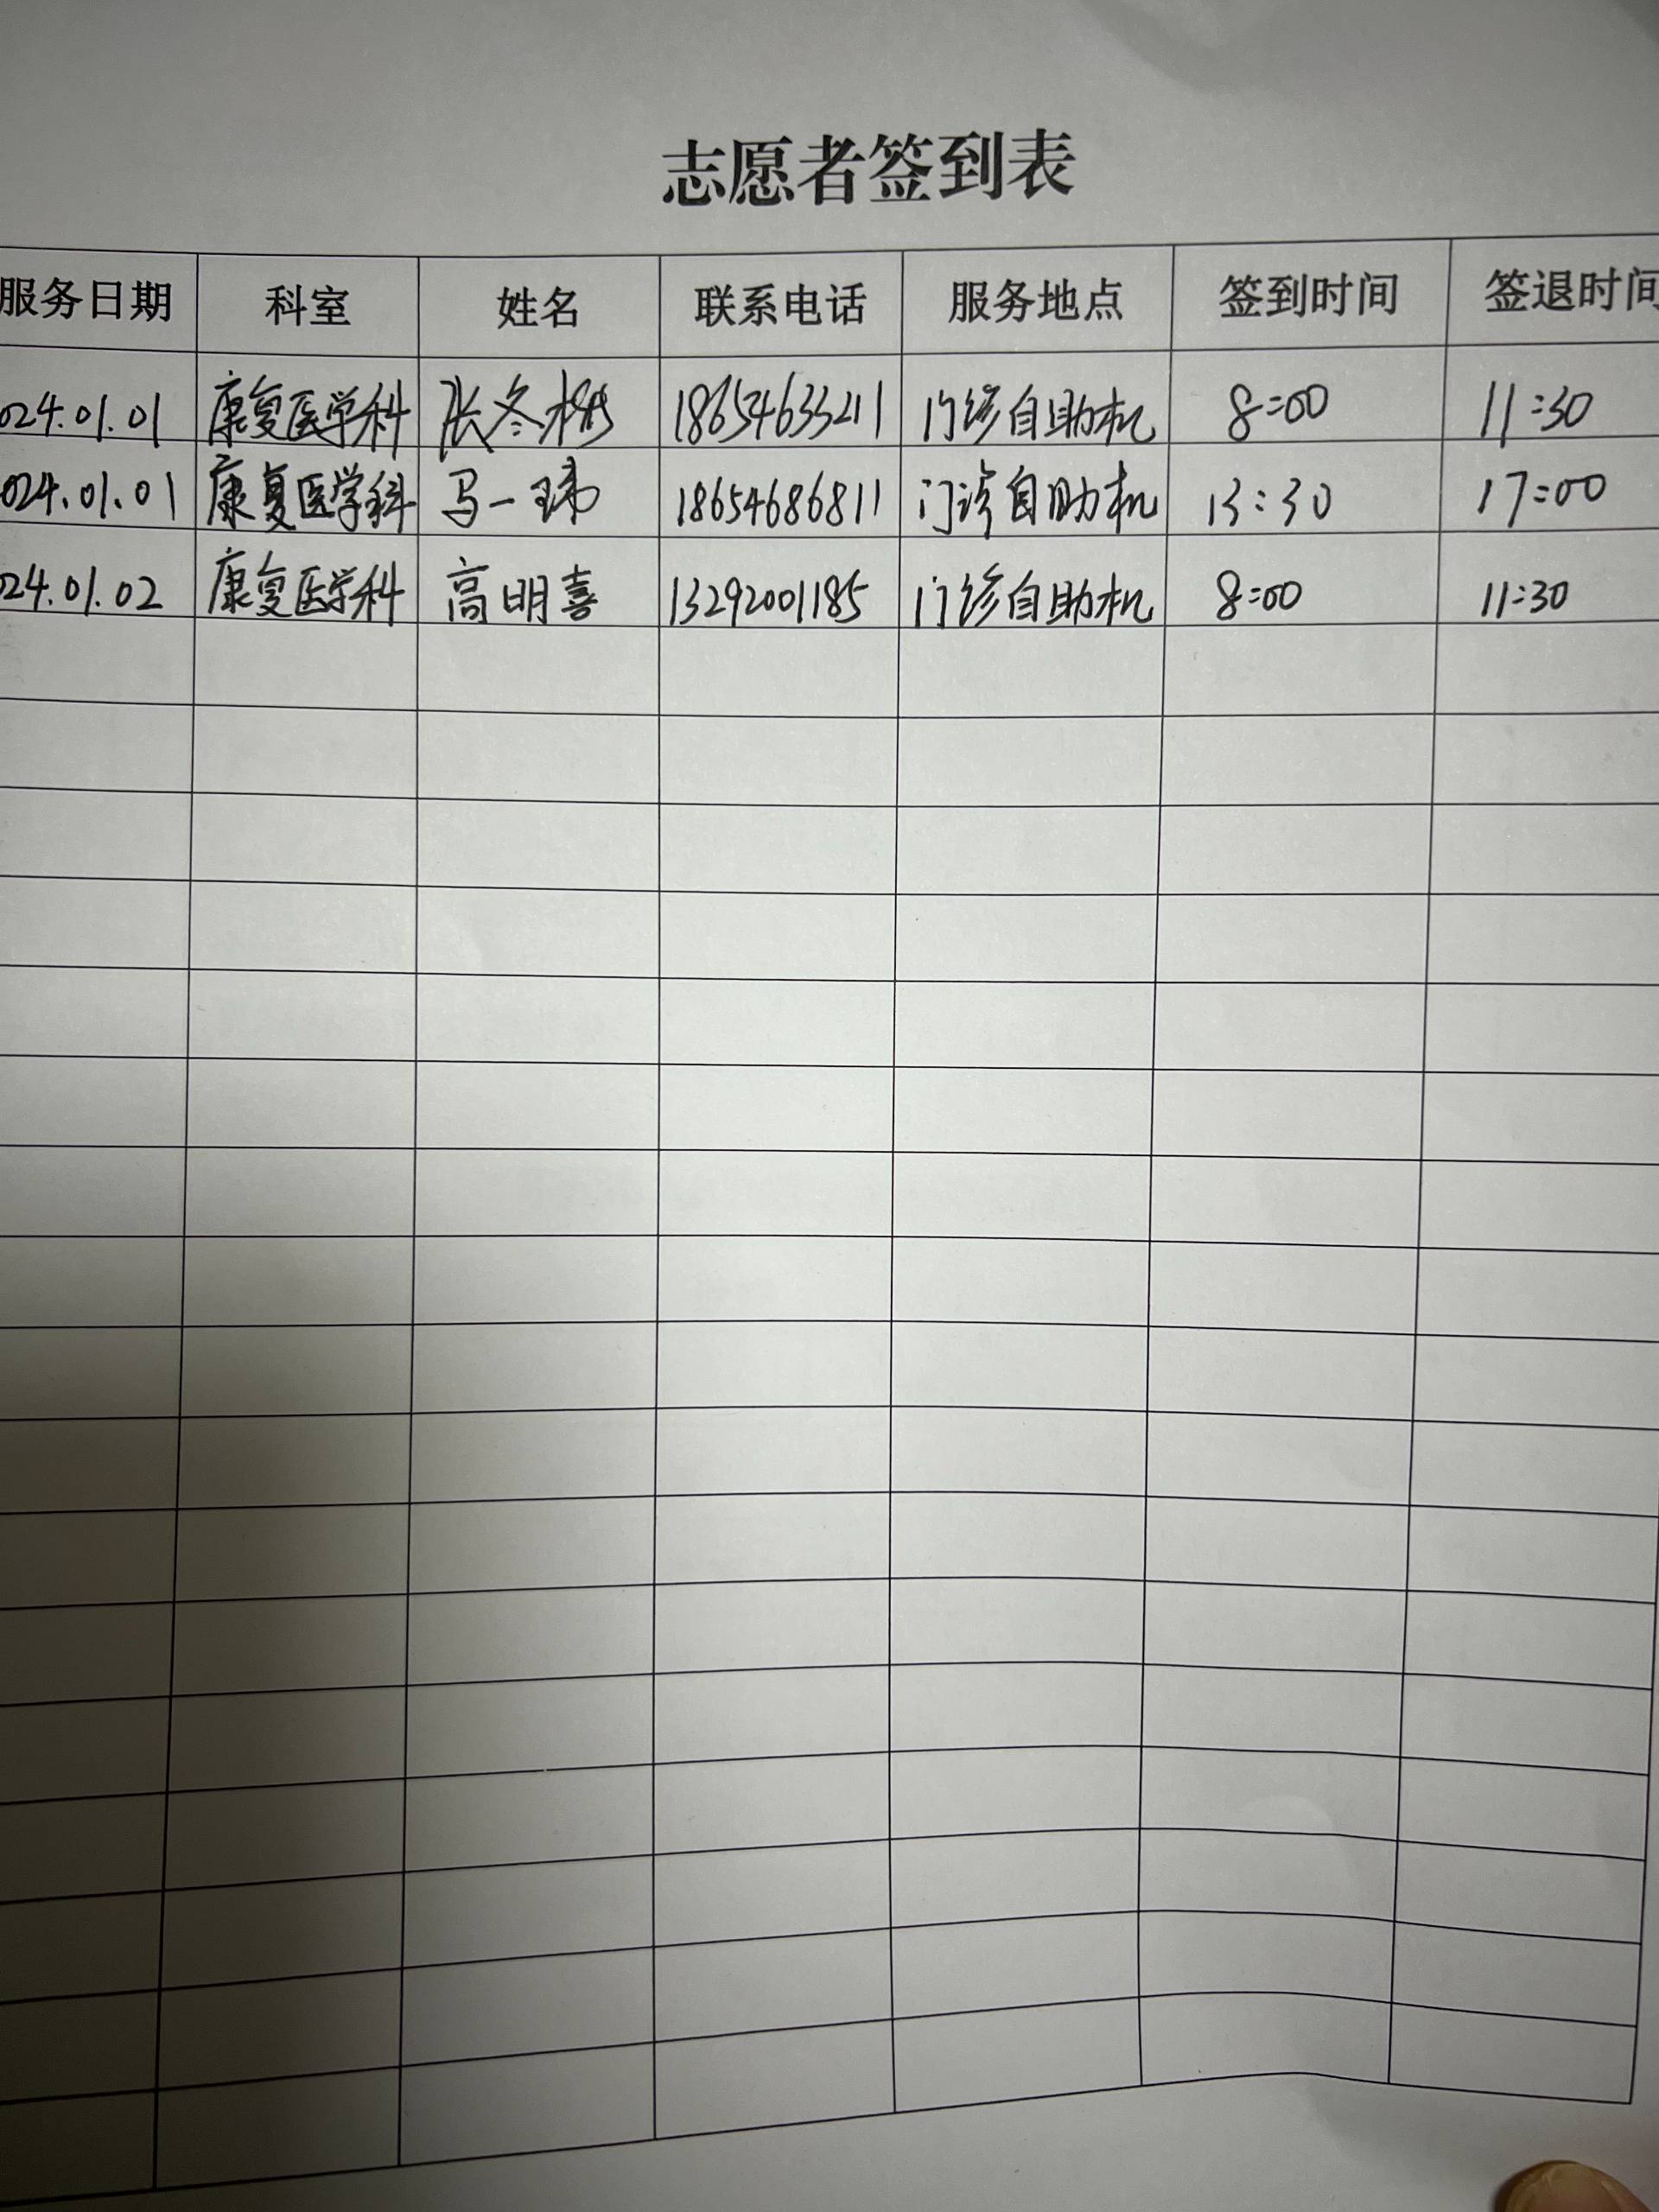 志愿者签到表
服务日期 科室 姓名 联系电话 服务地点 签到时间 签退时间
024.01.01 康复医学科 张冬梅 18654633211 门诊自助机 8:00 11:30
024.01.01 康复医学科 马一玮 18654686811 门诊自助机 13:30 17:00
24.01.02 康复医学科 高明喜 13292001185 门诊自助机 8:00 11:30